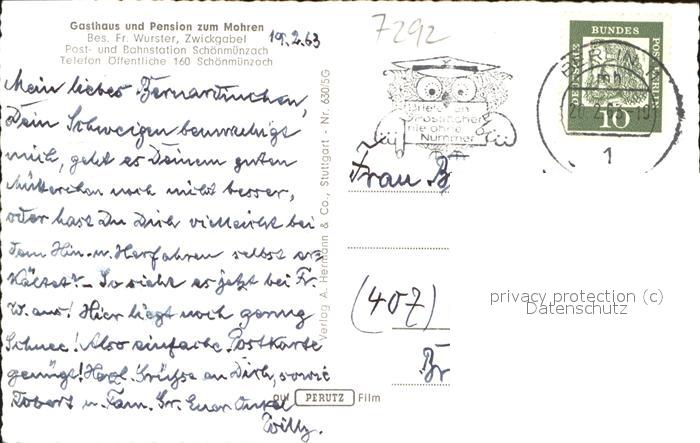 Gasthaus und Pension zum Mohren
Bes. Fr. Wurster, Zwickgabel
Post- und Bahnstation Schönmünzach
Telefon Öffentliche 160 Schönmünzach
19.2.63
Mein liebes Bernardinchen,
Dein Schweigen beunruhigt
mich, geht es Deinem guten
Mütterchen noch nicht besser,
oder hast Du Dich vielleicht bei
dem Hin- u. Herfahren selbst er-
kältet? - So sieht es jetzt bei Fr.
W. aus! Hier liegt noch genug
Schnee! Also einfache Postkarte
genügt! Herzl. Grüße an Dich, sowie
u. Fam. Gr. Euer Onkel
Willy.
Verlag A. Hermann & Co., Stuttgart - Nr. 630/5G
auf PERUTZ Film
7292
Postfächer
nie ohne
Nummer
BERLIN
1
DEUTSCHE BUNDESPOST BERLIN
10
Frau B
(407)
Br
privacy protection (c)
Datenschutz